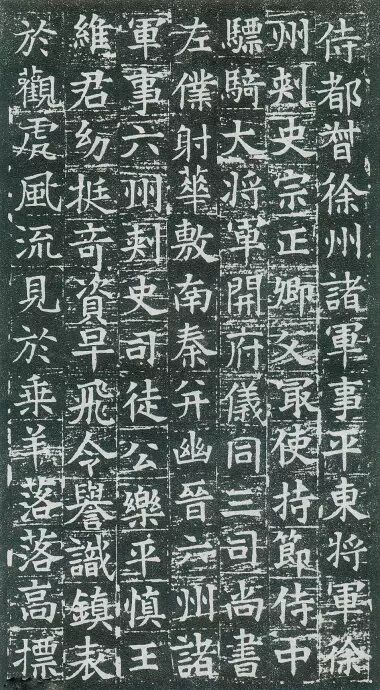 侍都督徐州諸軍事平東將軍徐
州刺史宗正卿父最使持節侍中
驃騎大將軍開府儀同三司尚書
左僕射華敷南秦并幽晉六州諸
軍事六州刺史司徒公樂平慎王
維君幼挺奇資早飛令譽識鎮表
於觀虎風流見於乘羊落落高標